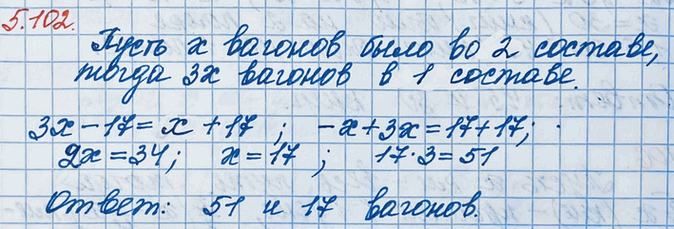 5.102.
Пусть x вагонов было во 2 составе,
тогда 3x вагонов в 1 составе.
3x - 17 = x + 17 ; -x + 3x = 17 + 17;
2x = 34; x = 17 ; 17·3 = 51
Ответ: 51 и 17 вагонов.